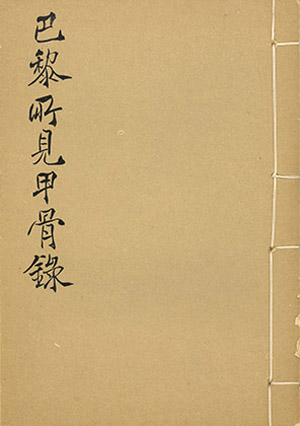 巴黎所見甲骨錄